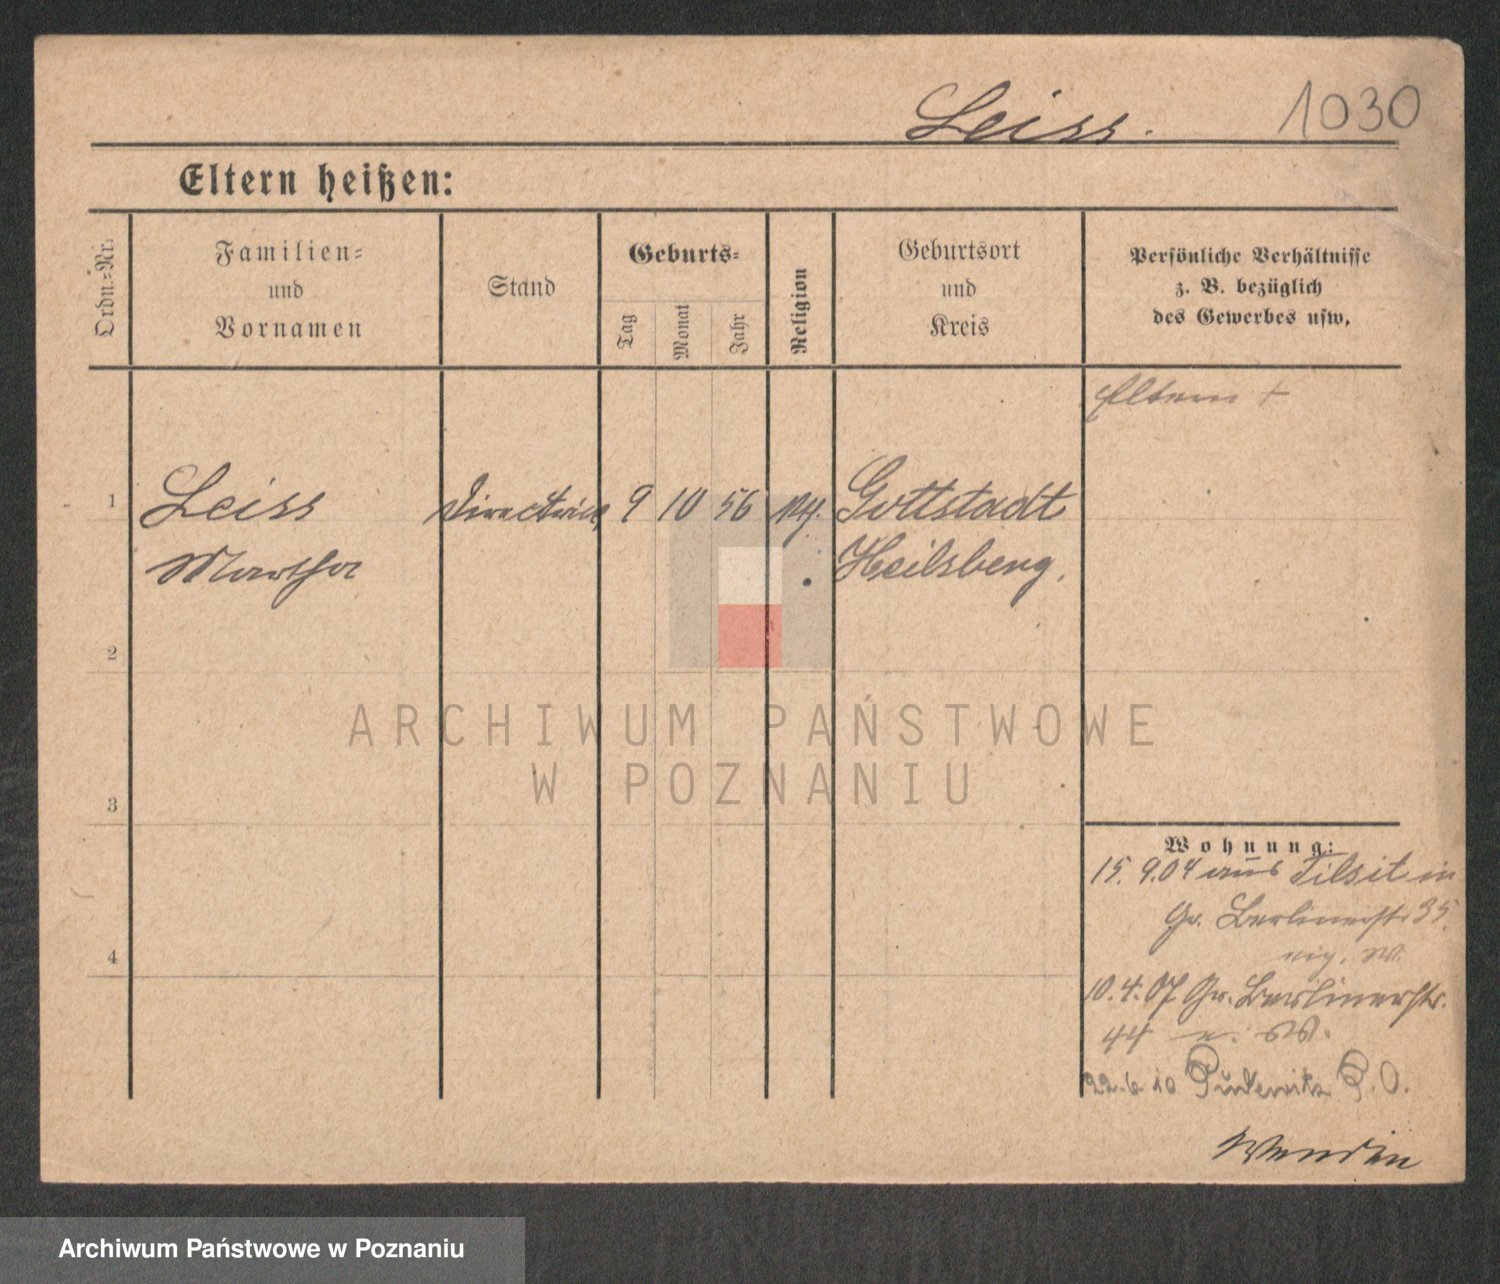 Leiss. 1030
Eltern heißen:
Ordn.-Nr.
Familien-
und
Vornamen
Stand
Geburts-
Tag
Monat
Jahr
Religion
Geburtsort
und
Kreis
Persönliche Verhältnisse
z. B. bezüglich
des Gewerbes usw.
Eltern +
1 Leiss Directrice 9 10 56 Guttstadt
Martha Heilsberg.
2
ARCHIWUM PAŃSTWOWE
W POZNANIU
3
Wohnung:
15. 9.04 aus Tilsit in
Gr. Berlinerstr 35.
4
10.4.07 Gr. Berlinerstr.
44
22.6.10 Pudewitz P.O.
Archiwum Państwowe w Poznaniu